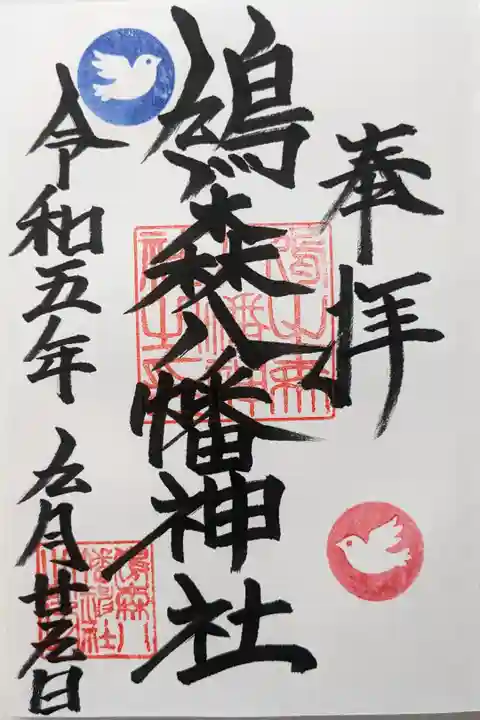 奉拝
鳩森八幡神社
令和五年 九月廿六日